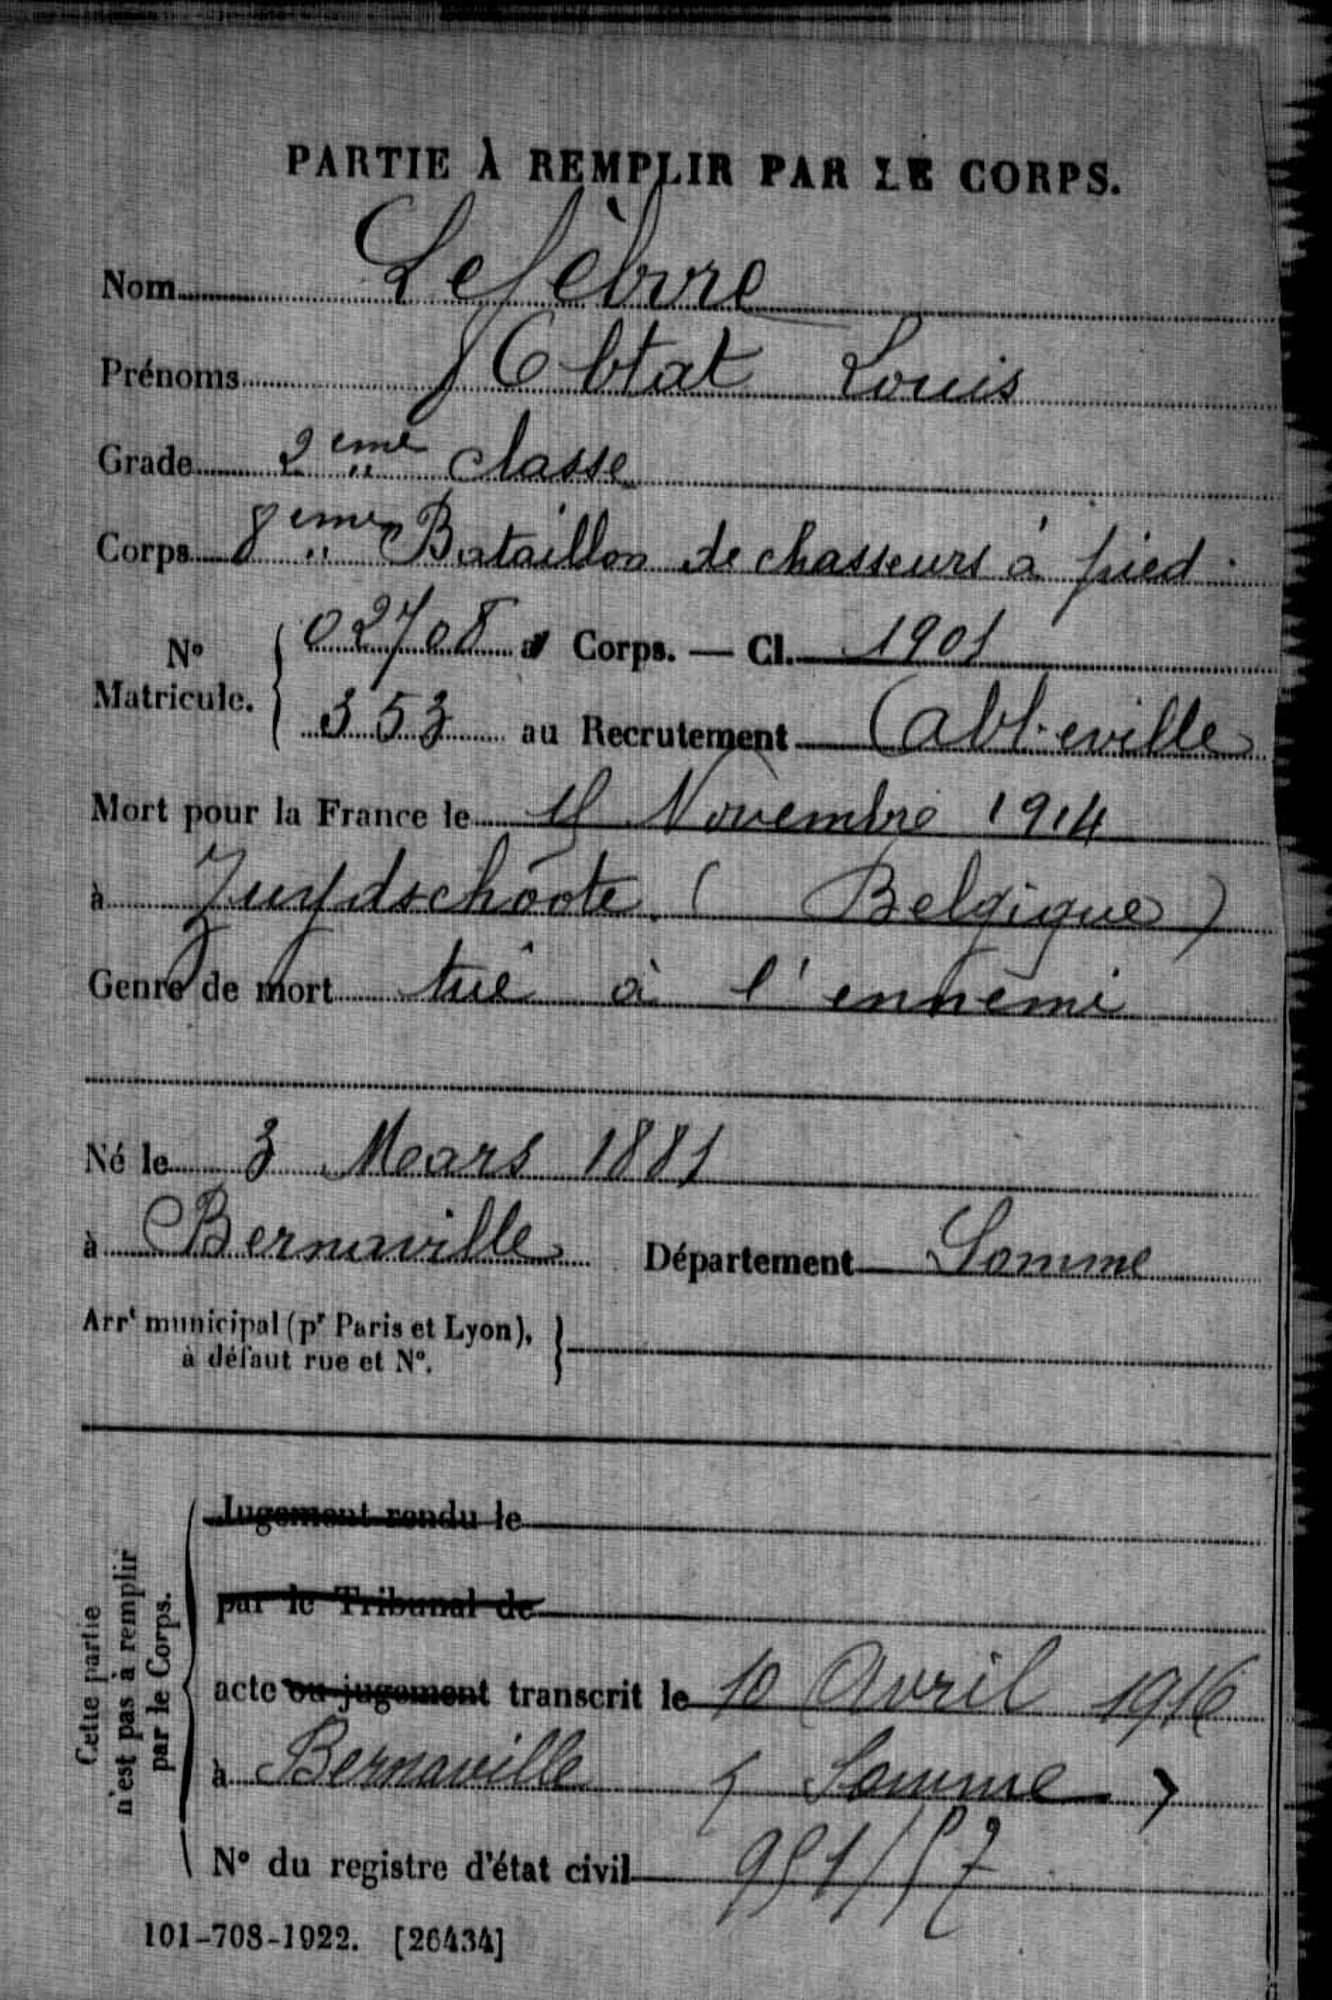 PARTIE À REMPLIR PAR LE CORPS.
Nom Lefèbvre
Prénoms Obtat Louis
Grade 2ème classe
Corps 8ème Bataillon de chasseurs à pied
No Matricule. 02708 au Corps. — Cl. 1901
353 au Recrutement Abbeville
Mort pour la France le Novembre 1914
à Zuydschoote (Belgique)
Genre de mort tué à l'ennemi
Né le 3 Mars 1881
à Bernaville Département Somme
Arrt municipal (pr Paris et Lyon),
à défaut rue et No.
Cette partie
n'est pas à remplir
par le Corps.
Jugement rendu le
par le Tribunal de
acte ou jugement transcrit le 10 Avril 1916
à Bernaville (Somme)
No du registre d'état civil
101-708-1922. [26434]